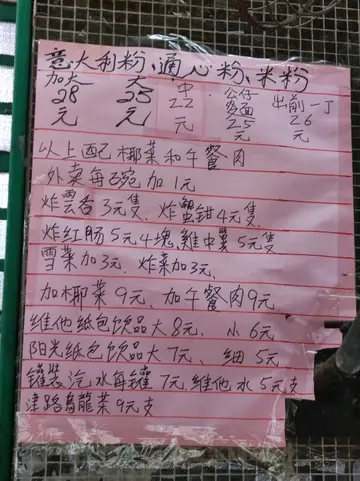 意大利粉、通心粉、米粉
加大 大 中 公仔 出前一丁
28 25 22 麥面 26
元 元 元 25 元
元
以上配椰菜和午餐肉
外卖每碗加1元
炸雲吞3元隻、炸蟹钳4元隻
炸红肠5元4塊、雞中翼5元隻
雪菜加3元、炸菜加3元、
加椰菜9元、加午餐肉9元
維他纸包饮品大8元、小6元
阳光纸包饮品大7元、細5元
罐装汽水每罐7元、維他水5元支
津路烏龍菜9元支